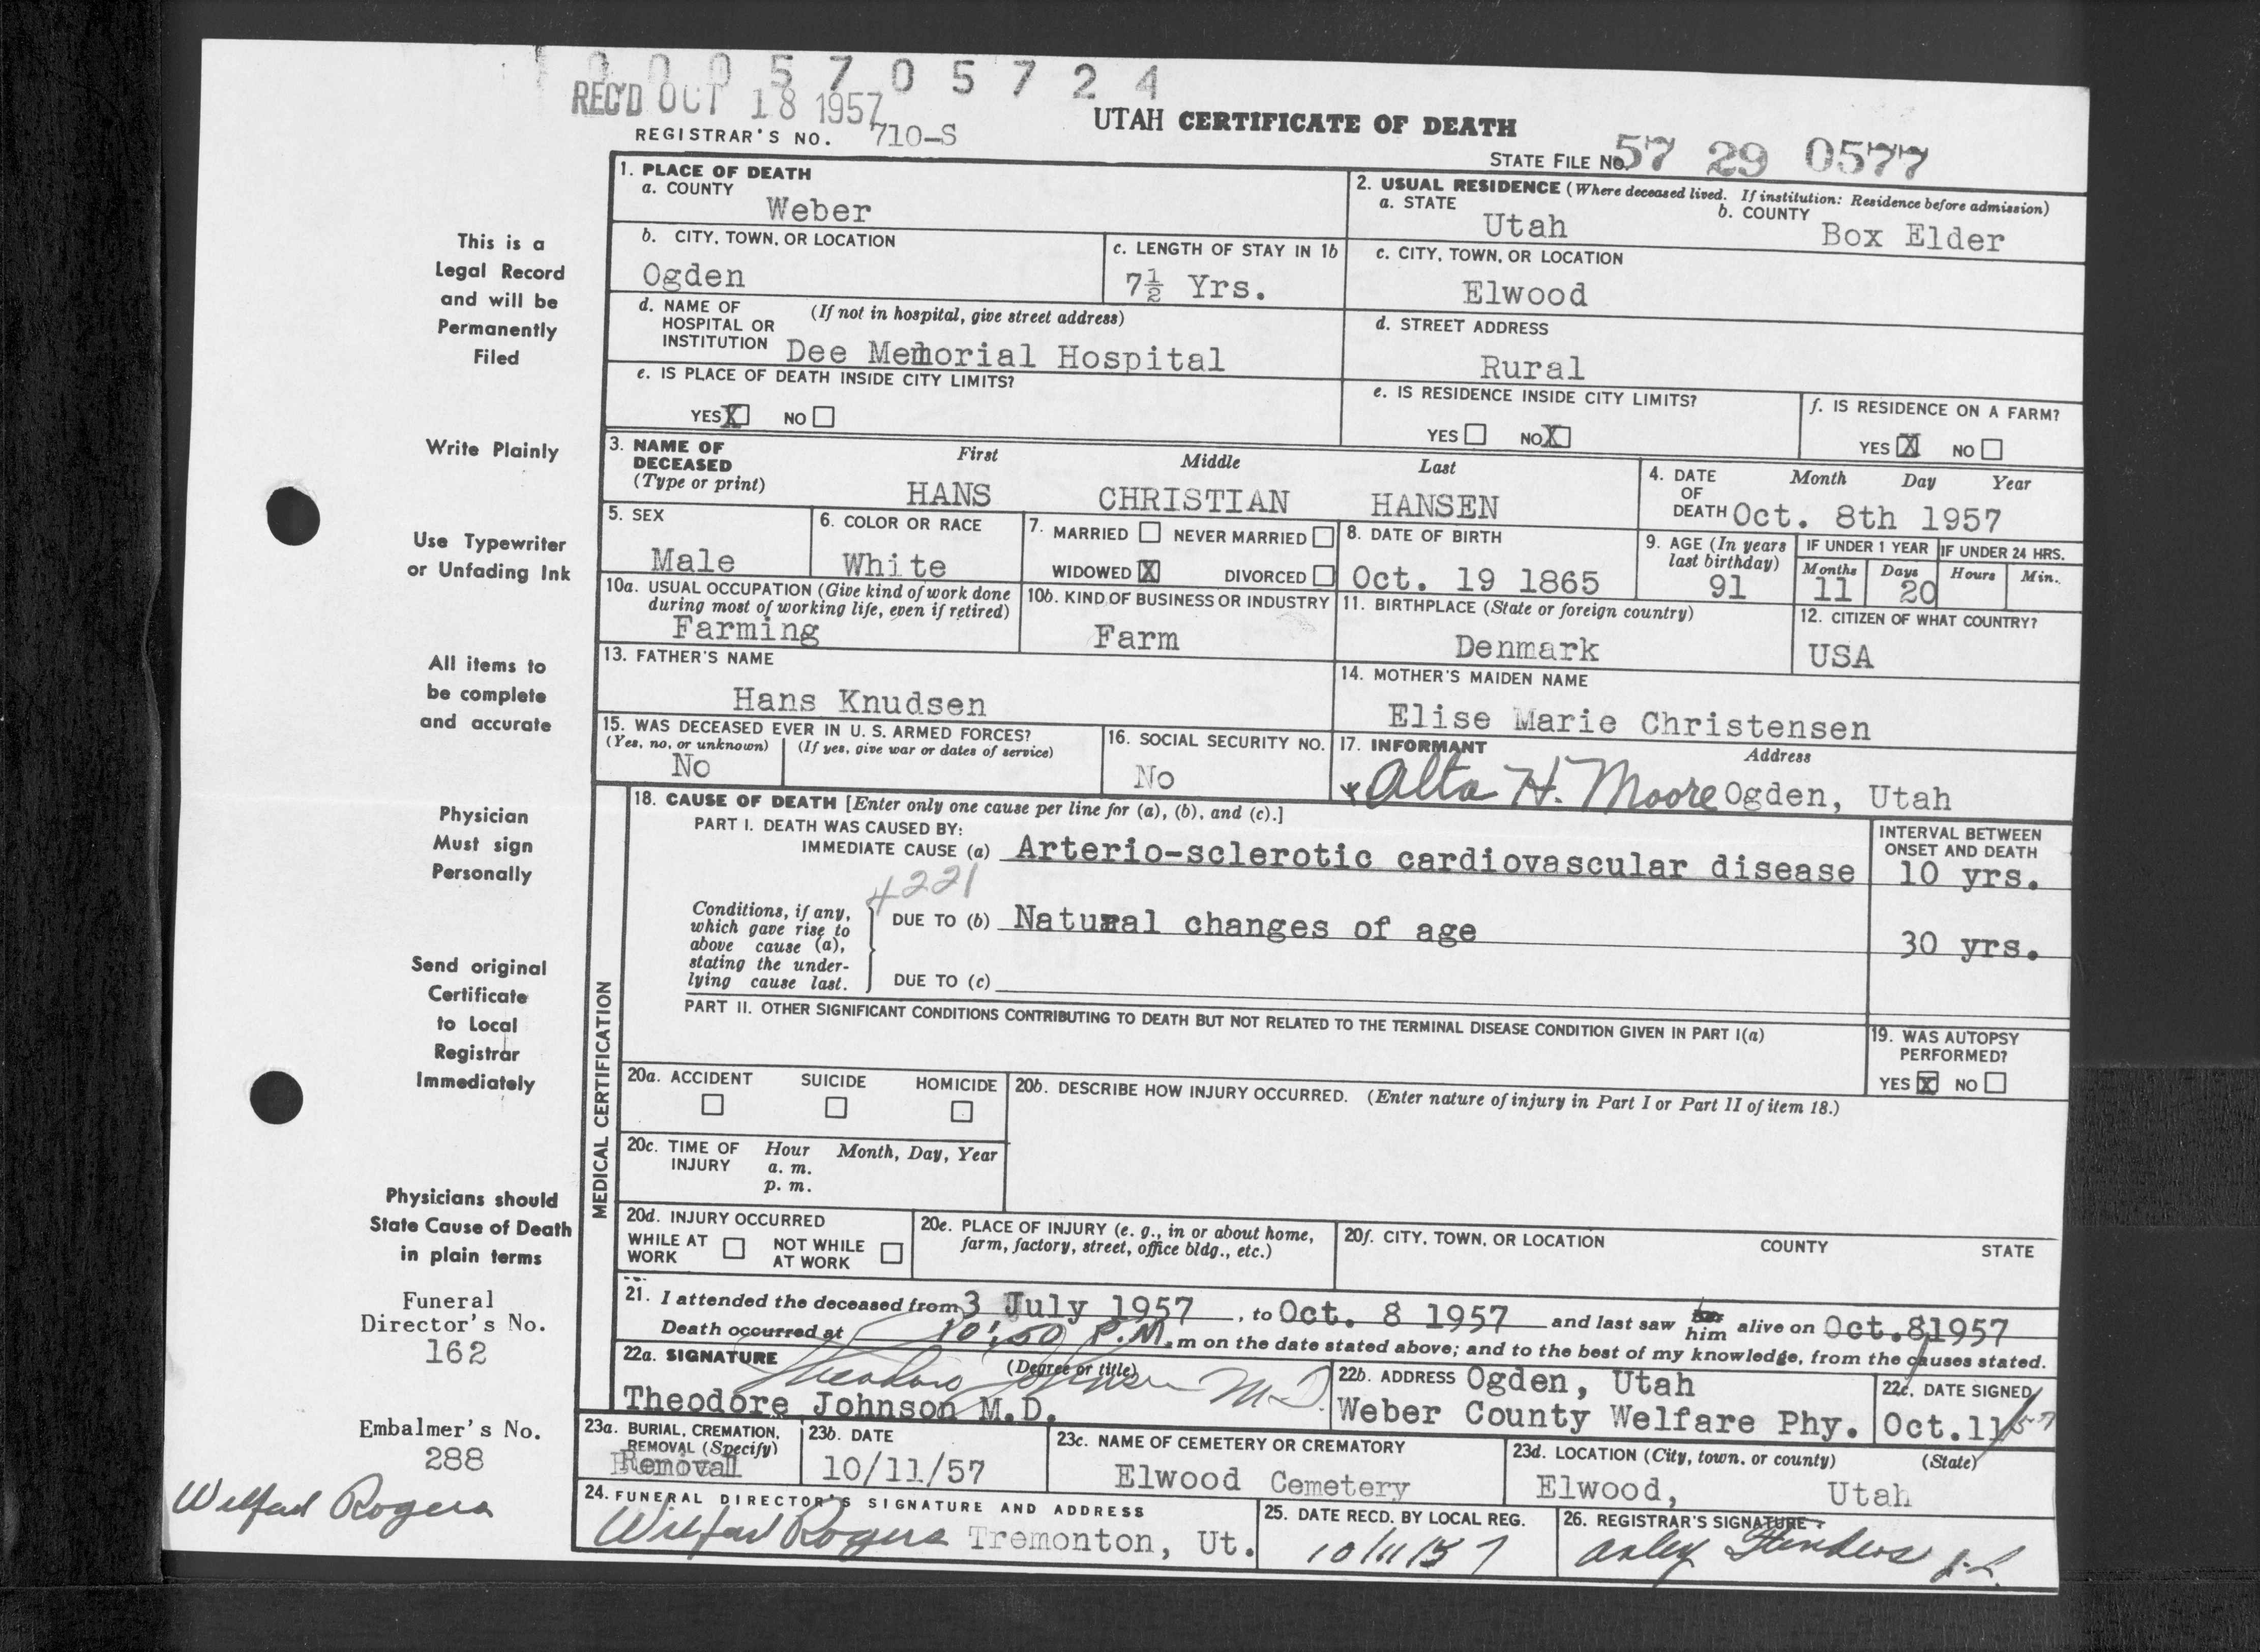 0005705724
REC'D OCT 18 1957
REGISTRAR'S NO. 710-S
UTAH CERTIFICATE OF DEATH
STATE FILE NO. 57 29 0577
This is a
Legal Record
and will be
Permanently
Filed
Write Plainly
Use Typewriter
or Unfading Ink
All items to
be complete
and accurate
Physician
Must sign
Personally
Send original
Certificate
to Local
Registrar
Immediately
Physicians should
State Cause of Death
in plain terms
Funeral
Director's No.
162
Embalmer's No.
288
Wilford Rogers
1. PLACE OF DEATH
a. COUNTY
Weber
2. USUAL RESIDENCE (Where deceased lived. If institution: Residence before admission)
a. STATE Utah b. COUNTY Box Elder
b. CITY, TOWN, OR LOCATION
Ogden
c. LENGTH OF STAY IN 1b
7½ Yrs.
c. CITY, TOWN, OR LOCATION
Elwood
d. NAME OF HOSPITAL OR INSTITUTION (If not in hospital, give street address)
Dee Memorial Hospital
d. STREET ADDRESS
Rural
e. IS PLACE OF DEATH INSIDE CITY LIMITS?
YES X NO
e. IS RESIDENCE INSIDE CITY LIMITS?
YES NO X
f. IS RESIDENCE ON A FARM?
YES X NO
3. NAME OF DECEASED (Type or print)
First Middle Last
HANS CHRISTIAN HANSEN
4. DATE OF DEATH Month Day Year
Oct. 8th 1957
5. SEX
Male
6. COLOR OR RACE
White
7. MARRIED NEVER MARRIED
WIDOWED X DIVORCED
8. DATE OF BIRTH
Oct. 19 1865
9. AGE (In years last birthday)
91
IF UNDER 1 YEAR IF UNDER 24 HRS.
Months Days Hours Min.
11 20
10a. USUAL OCCUPATION (Give kind of work done during most of working life, even if retired)
Farming
10b. KIND OF BUSINESS OR INDUSTRY
Farm
11. BIRTHPLACE (State or foreign country)
Denmark
12. CITIZEN OF WHAT COUNTRY?
USA
13. FATHER'S NAME
Hans Knudsen
14. MOTHER'S MAIDEN NAME
Elise Marie Christensen
15. WAS DECEASED EVER IN U. S. ARMED FORCES?
(Yes, no, or unknown) (If yes, give war or dates of service)
No
16. SOCIAL SECURITY NO.
No
17. INFORMANT Address
Alta H. Moore Ogden, Utah
MEDICAL CERTIFICATION
18. CAUSE OF DEATH [Enter only one cause per line for (a), (b), and (c).]
PART I. DEATH WAS CAUSED BY:
IMMEDIATE CAUSE (a) Arterio-sclerotic cardiovascular disease
INTERVAL BETWEEN ONSET AND DEATH
10 yrs.
4221
Conditions, if any, which gave rise to above cause (a), stating the underlying cause last.
DUE TO (b) Natural changes of age
30 yrs.
DUE TO (c)
PART II. OTHER SIGNIFICANT CONDITIONS CONTRIBUTING TO DEATH BUT NOT RELATED TO THE TERMINAL DISEASE CONDITION GIVEN IN PART I(a)
19. WAS AUTOPSY PERFORMED?
YES X NO
20a. ACCIDENT SUICIDE HOMICIDE
20b. DESCRIBE HOW INJURY OCCURRED. (Enter nature of injury in Part I or Part II of item 18.)
20c. TIME OF INJURY Hour Month, Day, Year
a. m.
p. m.
20d. INJURY OCCURRED
WHILE AT WORK NOT WHILE AT WORK
20e. PLACE OF INJURY (e. g., in or about home, farm, factory, street, office bldg., etc.)
20f. CITY, TOWN, OR LOCATION COUNTY STATE
21. I attended the deceased from 3 July 1957, to Oct. 8 1957 and last saw him alive on Oct.8,1957
Death occurred at 10:50 P.M. m on the date stated above; and to the best of my knowledge, from the causes stated.
22a. SIGNATURE (Degree or title)
Theodore Johnson M.D.
Theodore Johnson M.D.
22b. ADDRESS Ogden, Utah
Weber County Welfare Phy.
22c. DATE SIGNED
Oct.11/57
23a. BURIAL, CREMATION, REMOVAL (Specify)
Removal
23b. DATE
10/11/57
23c. NAME OF CEMETERY OR CREMATORY
Elwood Cemetery
23d. LOCATION (City, town, or county) (State)
Elwood, Utah
24. FUNERAL DIRECTOR'S SIGNATURE AND ADDRESS
Wilford Rogers Tremonton, Ut.
25. DATE RECD. BY LOCAL REG.
10/11/57
26. REGISTRAR'S SIGNATURE